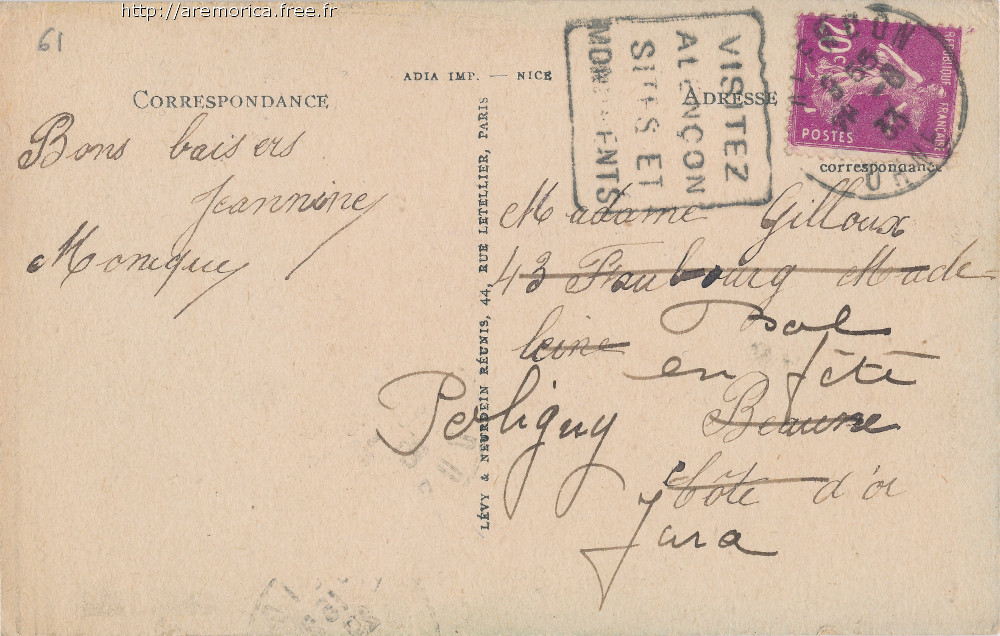 http://aremorica.free.fr
61
ADIA IMP. — NICE
CORRESPONDANCE
ADRESSE
correspondance
VISITEZ
ALENÇON
SITES ET
MONUMENTS
20c
POSTES
REPUBLIQUE FRANÇAISE
LÉVY & NEURDEIN RÉUNIS, 44, RUE LETELLIER, PARIS
Bons baisers
Jeannine
Monique
Madame Gilloux
43 Faubourg Made-
leine
en fête
Poligny
Beaune
Côte d'or
Jura